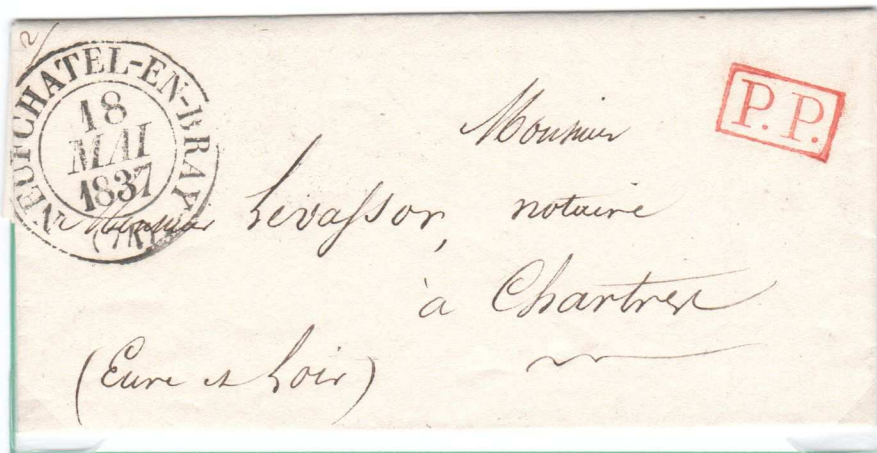 2
NEUFCHATEL-EN-BRAY
18
MAI
1837
(74)
P.P.
Monsieur
Monsieur Levassor, notaire
à Chartres
(Eure et Loir)